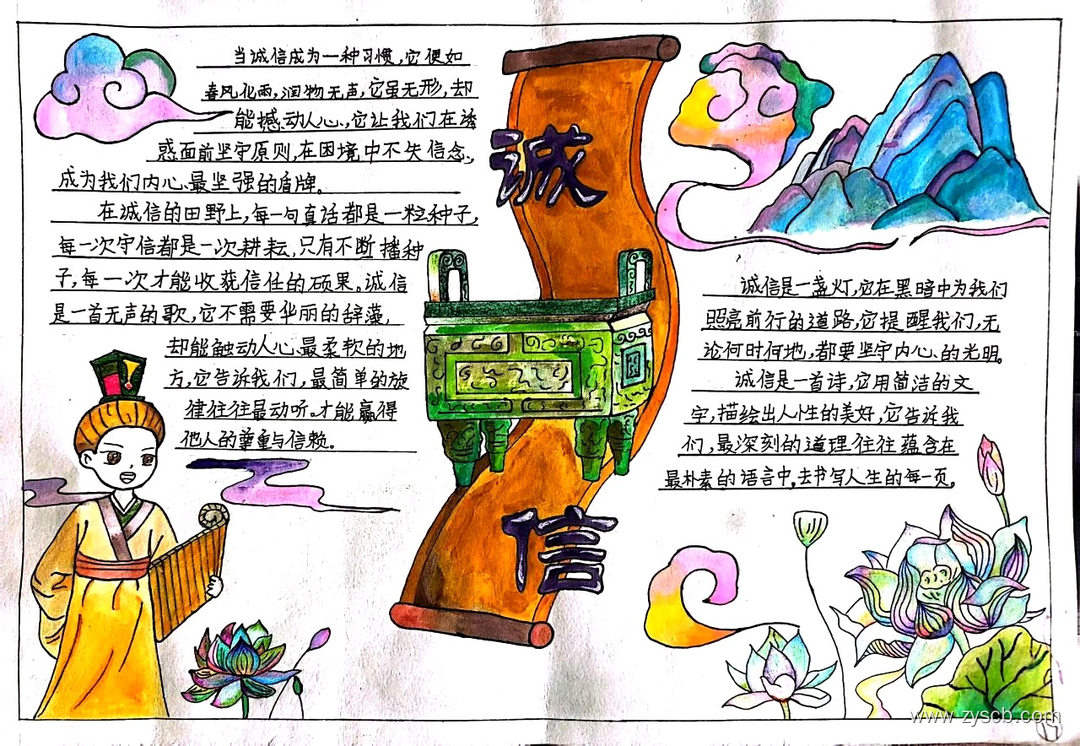 当诚信成为一种习惯,它便如
春风化雨,润物无声,它虽无形,却
能撼动人心,它让我们在诱
惑面前坚守原则,在困境中不失信念,
成为我们内心最坚强的盾牌。
在诚信的田野上,每一句真话都是一粒种子,
每一次守信都是一次耕耘,只有不断播种
子,每一次才能收获信任的硕果。诚信
是一首无声的歌,它不需要华丽的辞藻,
却能触动人心最柔软的地
方,它告诉我们,最简单的旋
律往往最动听。才能赢得
他人的尊重与信赖。
诚
信
诚信是一盏灯,它在黑暗中为我们
照亮前行的道路,它提醒我们,无
论何时何地,都要坚守内心的光明。
诚信是一首诗,它用简洁的文
字,描绘出人性的美好,它告诉我
们,最深刻的道理往往蕴含在
最朴素的语言中。去书写人生的每一页。
www.zyscb.com